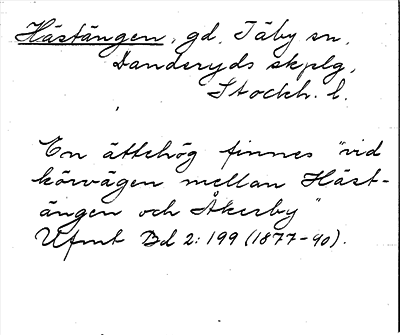 Hästängen, gd, Täby sn,
Danderyds skplg,
Stockh. l.
En ättehög finnes "vid
körvägen mellan Häst-
ängen och Åkerby"
Ufmt Bd 2: 199 (1877-90).